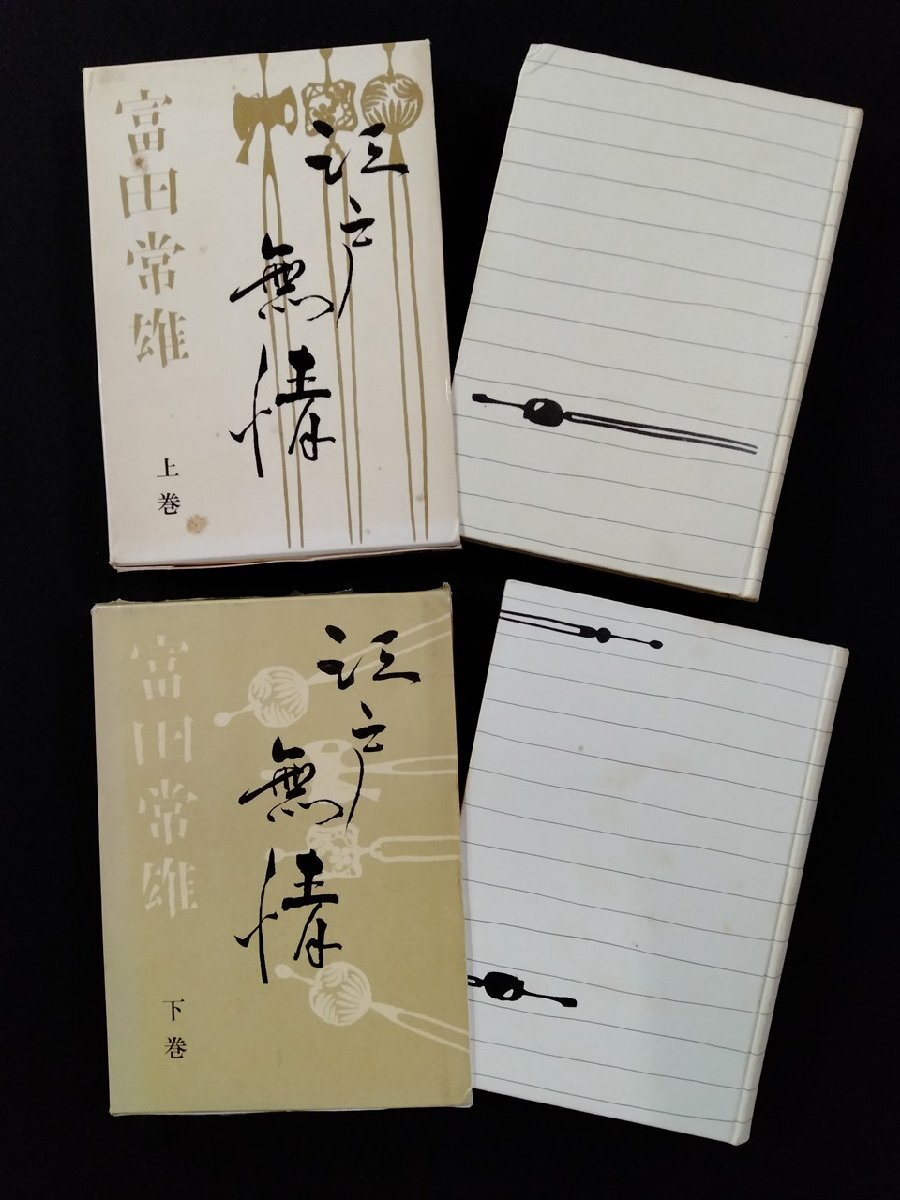 富田常雄
江戸無情
上巻
富田常雄
江戸無情
下巻